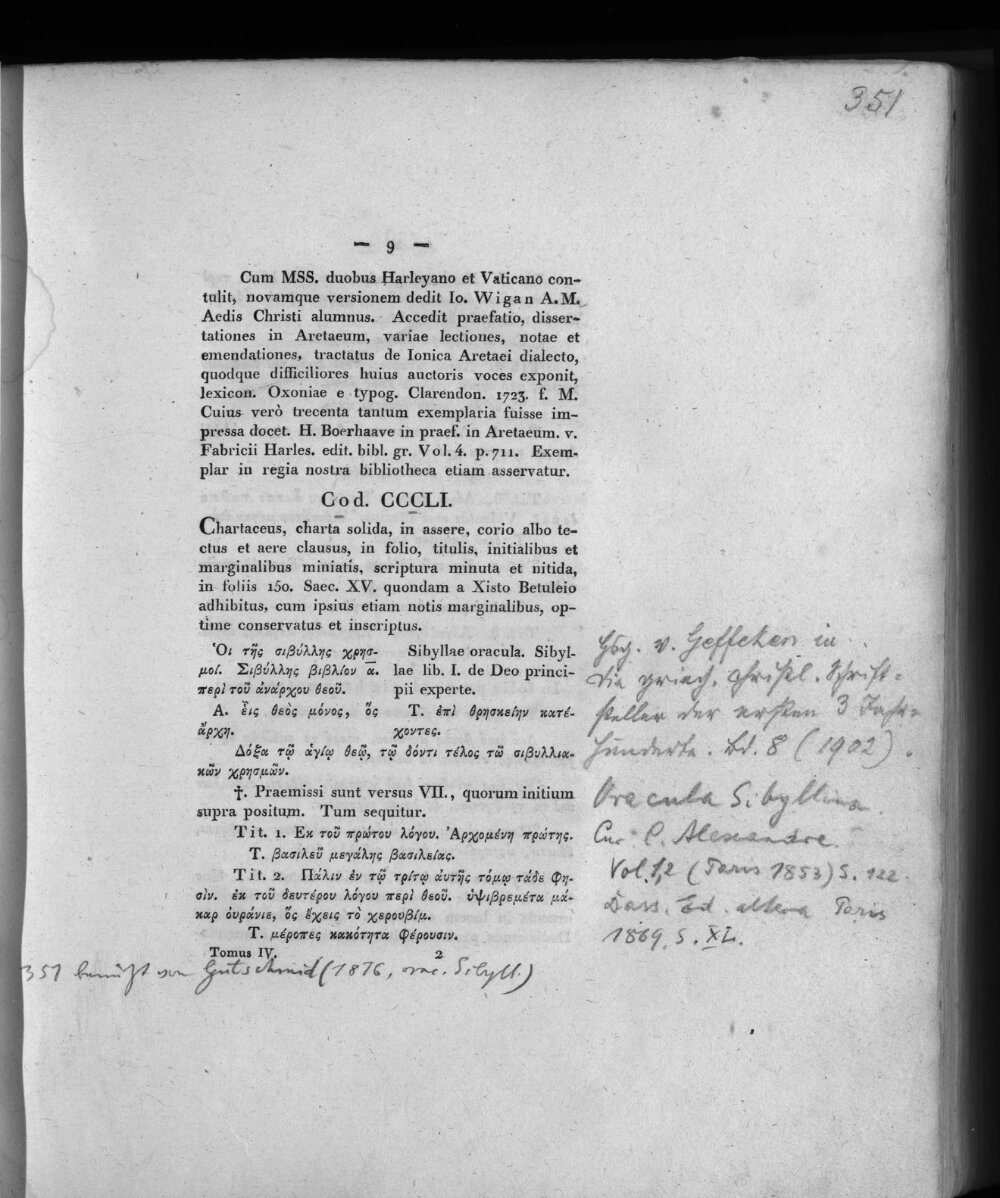 351
— 9 —
Cum MSS. duobus Harleyano et Vaticano con-
tulit, novamque versionem dedit Io. Wigan A.M.
Aedis Christi alumnus. Accedit praefatio, disser-
tationes in Aretaeum, variae lectiones, notae et
emendationes, tractatus de Ionica Aretaei dialecto,
quodque difficiliores huius auctoris voces exponit,
lexicon. Oxoniae e typog. Clarendon. 1723. f. M.
Cuius verò trecenta tantum exemplaria fuisse im-
pressa docet. H. Boerhaave in praef. in Aretaeum. v.
Fabricii Harles. edit. bibl. gr. Vol. 4. p. 711. Exem-
plar in regia nostra bibliotheca etiam asservatur.
Cod. CCCLI.
Chartaceus, charta solida, in assere, corio albo te-
ctus et aere clausus, in folio, titulis, initialibus et
marginalibus miniatis, scriptura minuta et nitida,
in foliis 150. Saec. XV. quondam a Xisto Betuleio
adhibitus, cum ipsius etiam notis marginalibus, op-
time conservatus et inscriptus.
Ὁι τῆς σιβύλλης χρησ-
μοί. Σιβύλλης βιβλίον α̅.
περὶ τοῦ ἀνάρχου θεοῦ.
Sibyllae oracula. Sibyl-
lae lib. I. de Deo princi-
pii experte.
Α. ἑις θεὸς μόνος, ὃς
ἄρχη.
Τ. ἐπὶ θρησκείην κατέ-
χοντες.
Δόξα τῷ ἁγίῳ θεῷ, τῷ δόντι τέλος τῶ σιβυλλια-
κῶν χρησμῶν.
†. Praemissi sunt versus VII., quorum initium
supra positum. Tum sequitur.
Tit. 1. Εκ τοῦ πρώτου λόγου. Ἀρχομένη πρώτης.
Τ. βασιλεῦ μεγάλης βασιλείας.
Tit. 2. Πάλιν ἐν τῷ τρίτῳ ἀυτῆς τόμῳ τάδε φη-
σίν. ἐκ τοῦ δευτέρου λόγου περὶ θεοῦ. ὑψιβρεμέτα μά-
καρ ουράνιε, ὃς ἔχεις τὸ χερουβίμ.
Τ. μέροπες κακότητα φέρουσιν.
Tomus IV. 2
Hsg. v. Geffcken in
Die griech. christl. Schrift-
steller der ersten 3 Jahr-
hunderte. Bd. 8 (1902).
Oracula Sibyllina
Cur C. Alexandre.
Vol. 1,2 (Paris 1853) S. 122
Dass. Ed. altera Paris
1869, S. XL.
351 benützt von Gutschmid (1876, orac. Sibyll.)